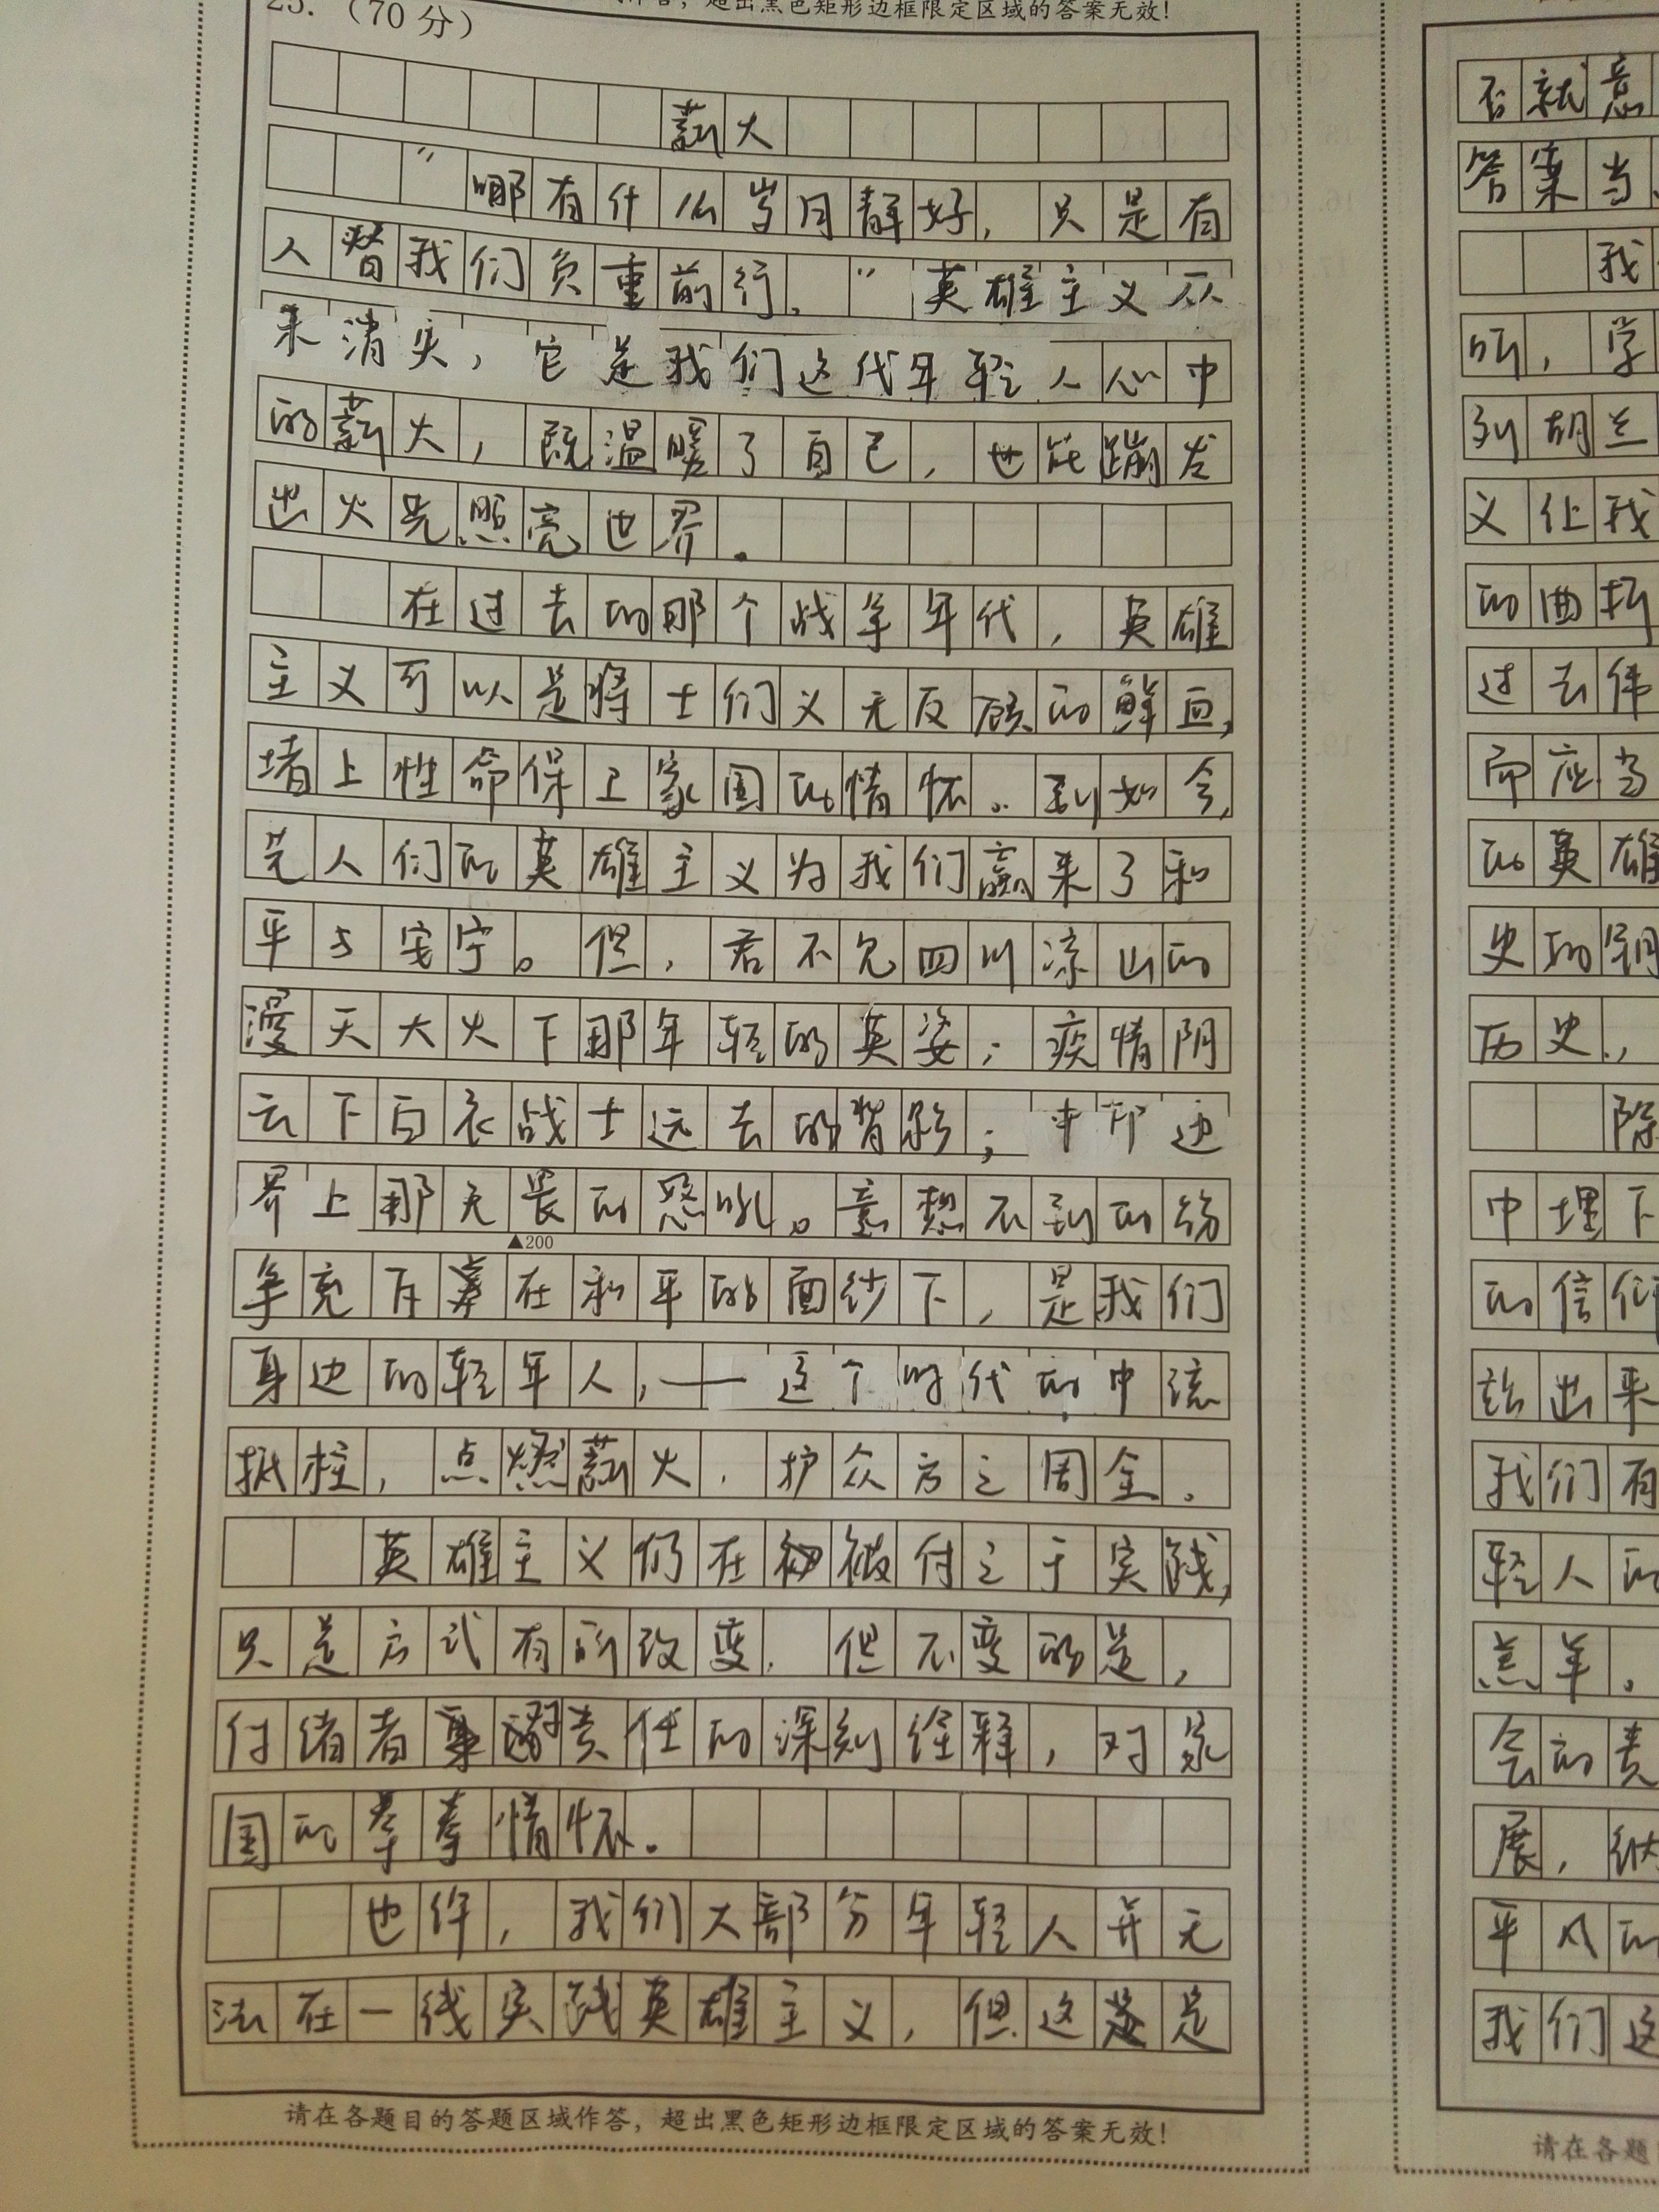 25.(70分)
超出黑色矩形边框限定区域的答案无效!
薪火
“哪有什么岁月静好,只是有
人替我们负重前行。”英雄主义从
未消失,它是我们这代年轻人心中
的薪火,既温暖了自己,也能蹦发
出火光照亮世界。
在过去的那个战争年代,英雄
主义可以是将士们义无反顾的鲜血,
堵上性命保卫家国的情怀。到如今,
先人们的英雄主义为我们赢来了和
平与安宁。但,君不见四川凉山的
漫天大火下那年轻的英姿;疫情阴
云下白衣战士远去的背影;中印边
界上那无畏的怒吼。意想不到的纷
▲200
争充斥在和平的面纱下,是我们
身边的轻年人,——这个时代的中流
抵柱,点燃薪火,护众方之周全。
英雄主义仍在被付之于实践,
只是方式有所改变,但不变的是,
付诸者责任的深刻诠释,对家
国的拳拳情怀。
也许,我们大部分年轻人并无
法在一线实践英雄主义,但这是
请在各题目的答题区域作答,超出黑色矩形边框限定区域的答案无效!
否就意
答案当
我
听,学
列胡兰
义让我
的曲折
过去伟
而应当
的英雄
史的钢
历史,
除
中埋下
的信仰
出来
我们有
轻人的
羔羊。
会的责
展,
平凡的
我们这
请在各题